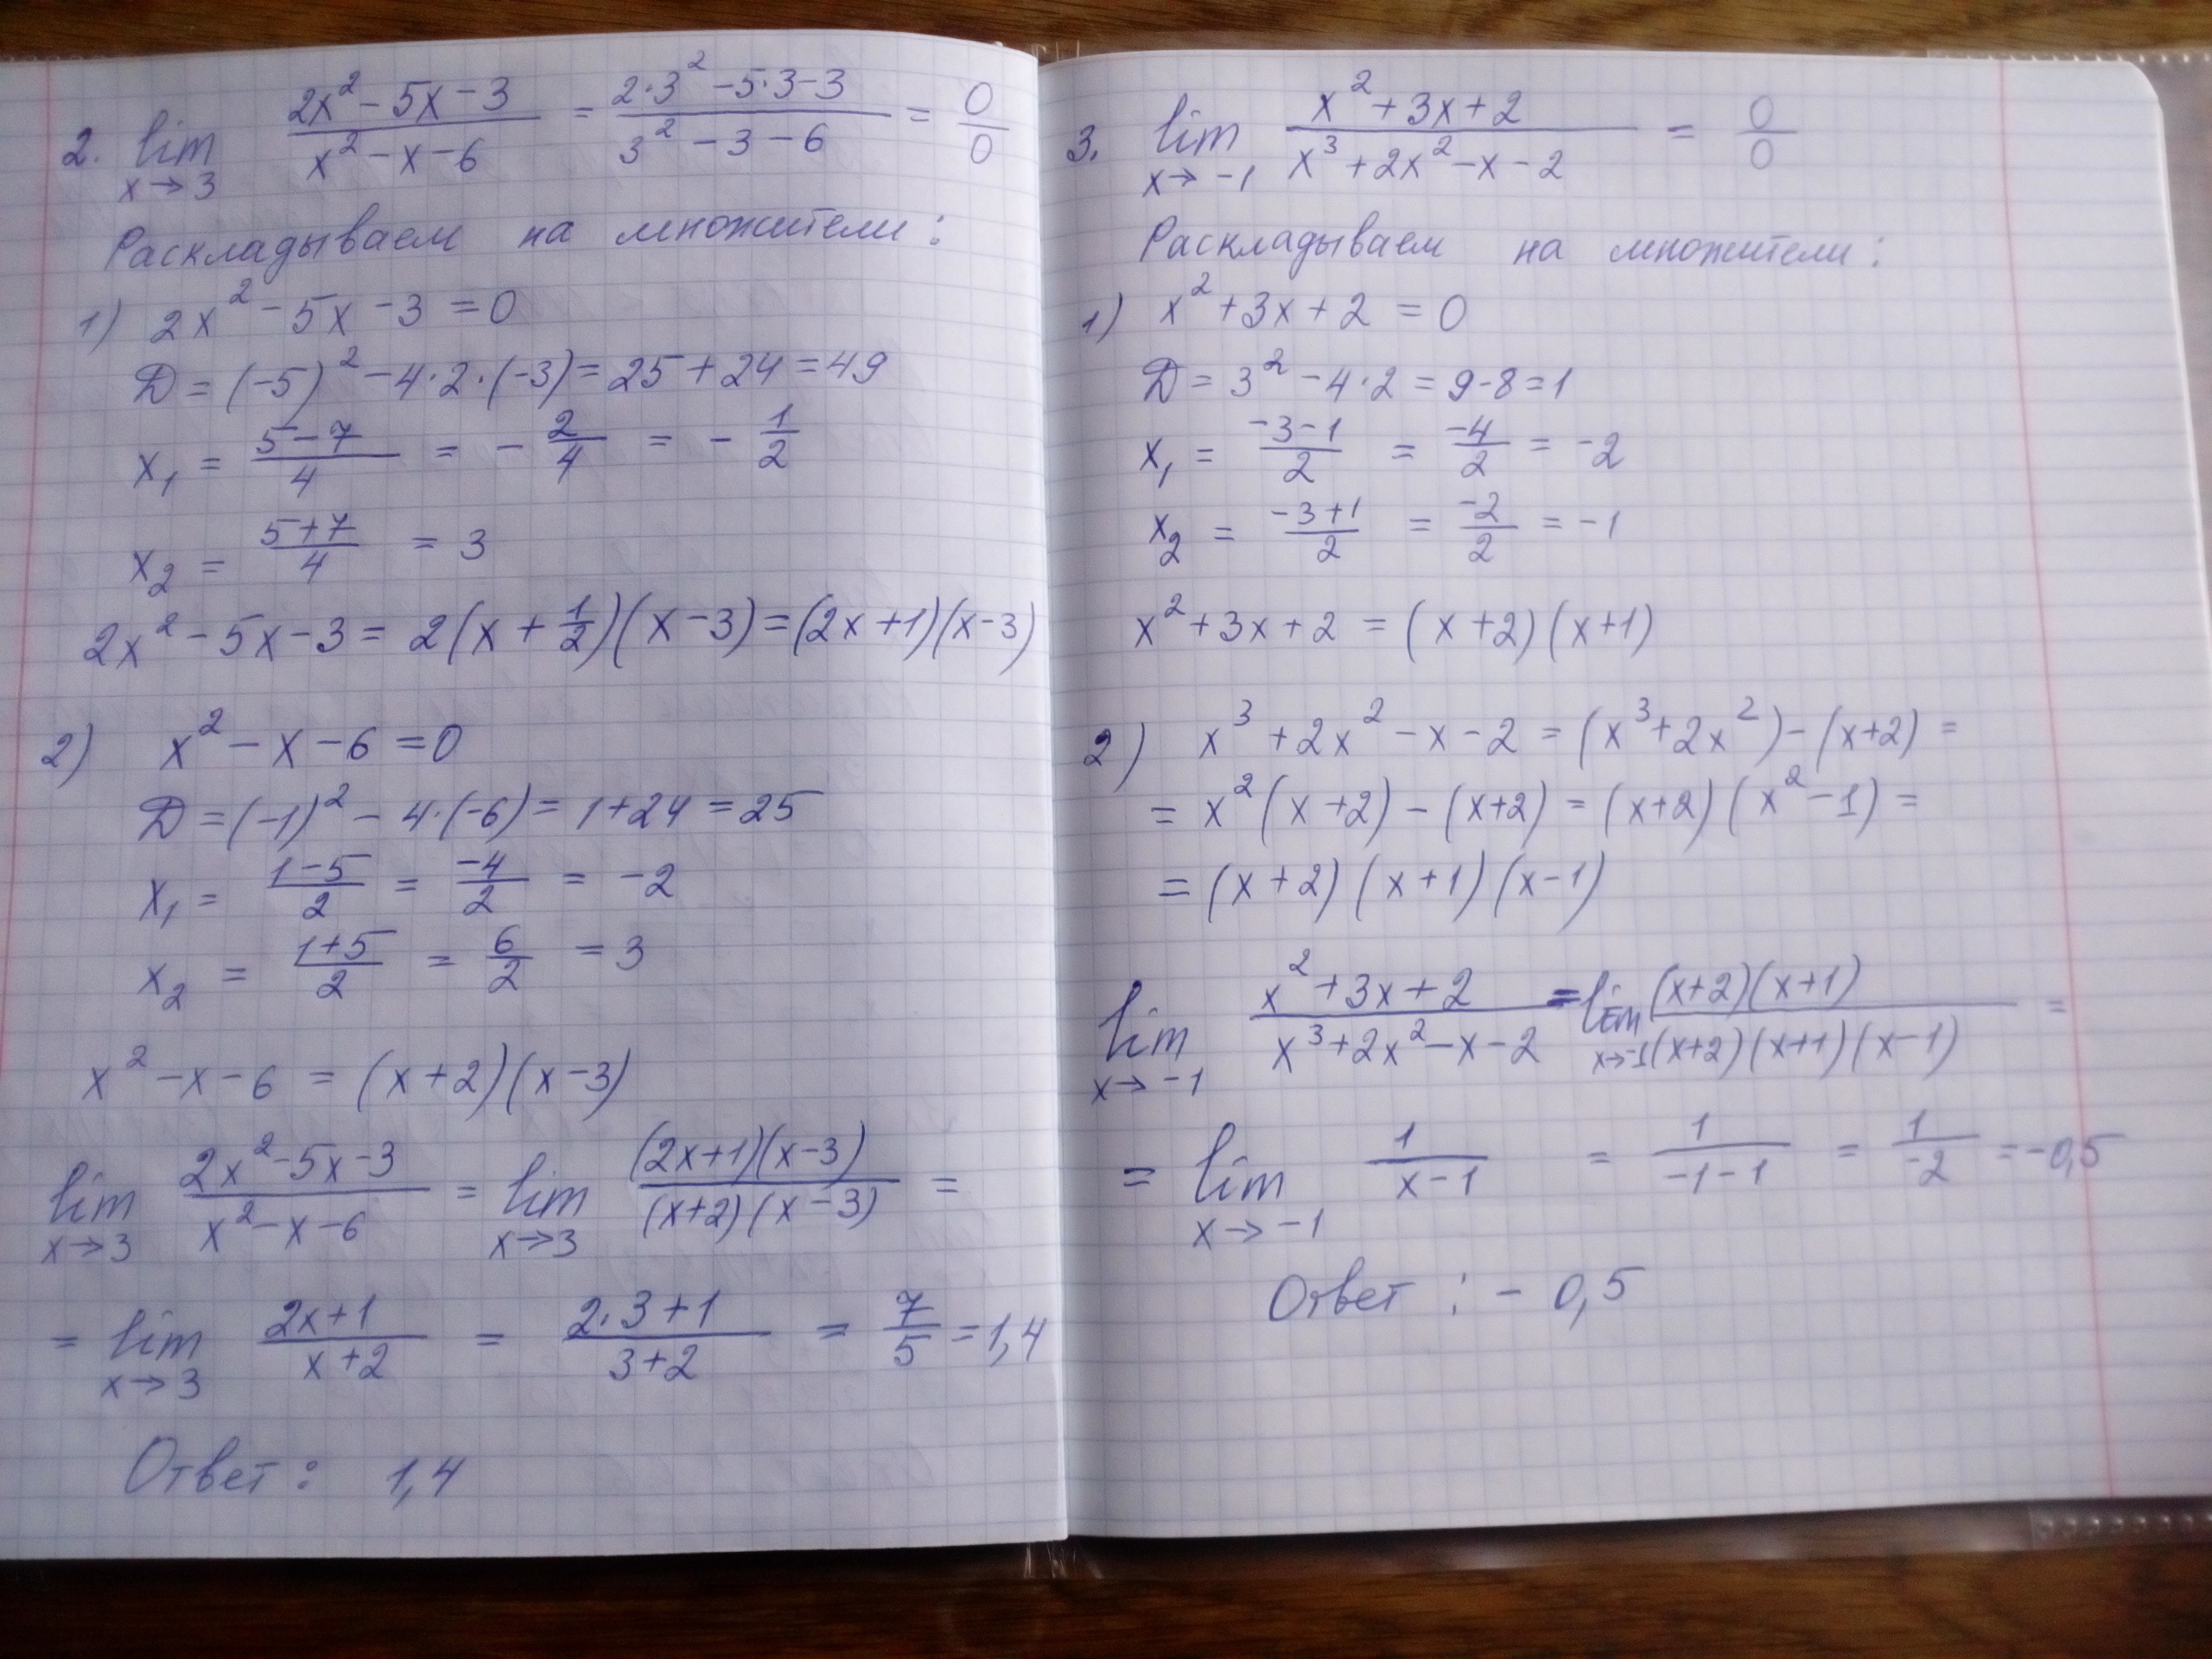 2. lim x→3 (2x² - 5x - 3)/(x² - x - 6) = (2·3² - 5·3 - 3)/(3² - 3 - 6) = 0/0
Раскладываем на множители:
1) 2x² - 5x - 3 = 0
D = (-5)² - 4·2·(-3) = 25 + 24 = 49
x₁ = (5 - 7)/4 = - 2/4 = - 1/2
x₂ = (5 + 7)/4 = 3
2x² - 5x - 3 = 2(x + 1/2)(x - 3) = (2x + 1)(x - 3)
2) x² - x - 6 = 0
D = (-1)² - 4·(-6) = 1 + 24 = 25
x₁ = (1 - 5)/2 = -4/2 = -2
x₂ = (1 + 5)/2 = 6/2 = 3
x² - x - 6 = (x + 2)(x - 3)
lim x→3 (2x² - 5x - 3)/(x² - x - 6) = lim x→3 ((2x + 1)(x - 3))/((x + 2)(x - 3)) =
= lim x→3 (2x + 1)/(x + 2) = (2·3 + 1)/(3 + 2) = 7/5 = 1,4
Ответ: 1,4
3. lim x→-1 (x² + 3x + 2)/(x³ + 2x² - x - 2) = 0/0
Раскладываем на множители:
1) x² + 3x + 2 = 0
D = 3² - 4·2 = 9 - 8 = 1
x₁ = (-3 - 1)/2 = -4/2 = -2
x₂ = (-3 + 1)/2 = -2/2 = -1
x² + 3x + 2 = (x + 2)(x + 1)
2) x³ + 2x² - x - 2 = (x³ + 2x²) - (x + 2) =
= x²(x + 2) - (x + 2) = (x + 2)(x² - 1) =
= (x + 2)(x + 1)(x - 1)
lim x→-1 (x² + 3x + 2)/(x³ + 2x² - x - 2) = lim x→-1 ((x + 2)(x + 1))/((x + 2)(x + 1)(x - 1)) =
= lim x→-1 1/(x - 1) = 1/(-1 - 1) = 1/-2 = -0,5
Ответ: - 0,5